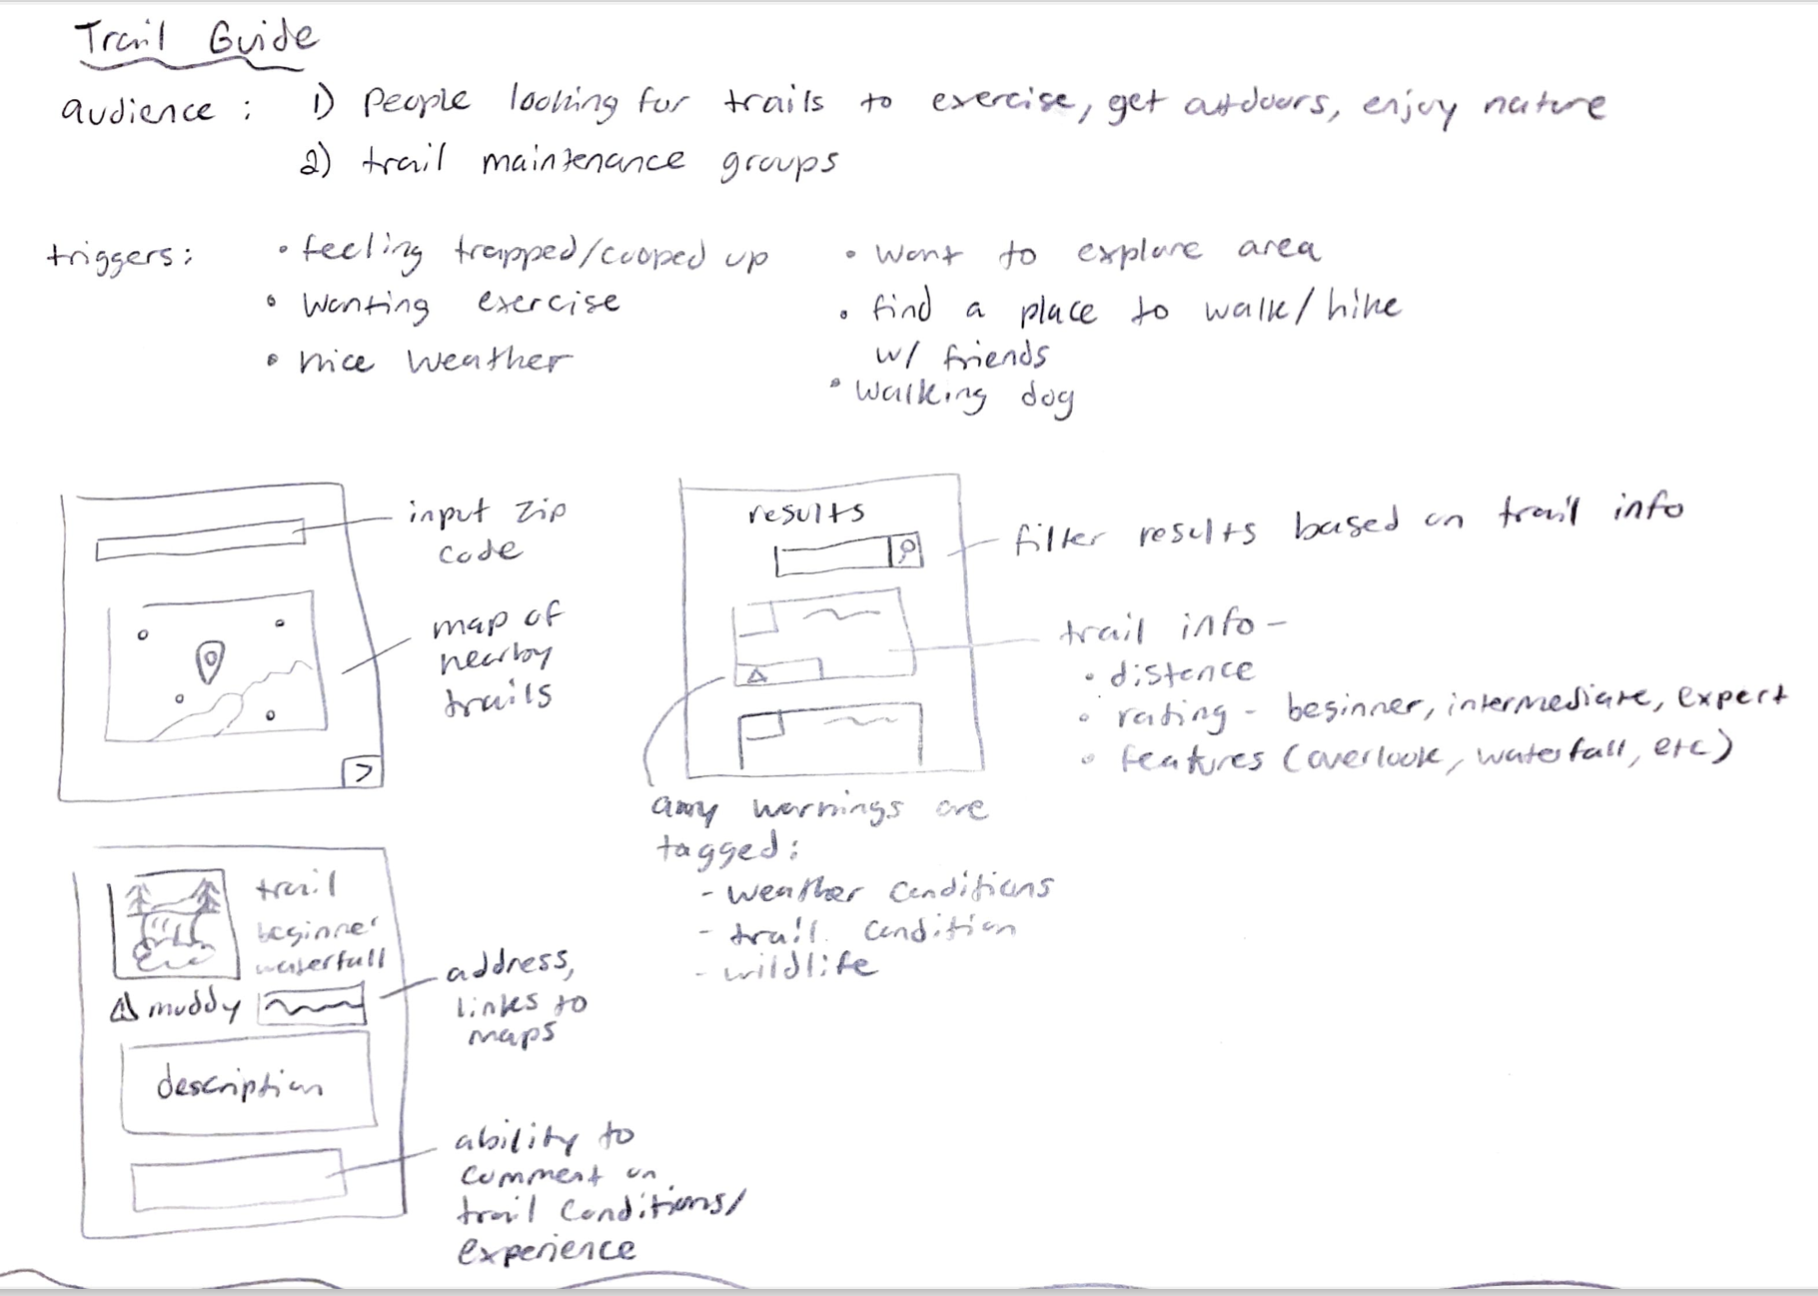 Trail Guide
audience: 1) people looking for trails to exercise, get outdoors, enjoy nature
2) trail maintenance groups
triggers:
• feeling trapped/cooped up
• wanting exercise
• nice weather
• want to explore area
• find a place to walk/hike
w/ friends
• walking dog
input zip
code
map of
nearby
trails
>
results
filter results based on trail info
trail info -
• distance
• rating - beginner, intermediate, expert
• features (overlook, waterfall, etc)
any warnings are
tagged:
- weather conditions
- trail condition
- wildlife
trail
beginner
waterfall
muddy
address,
links to
maps
description
ability to
comment on
trail conditions/
experience